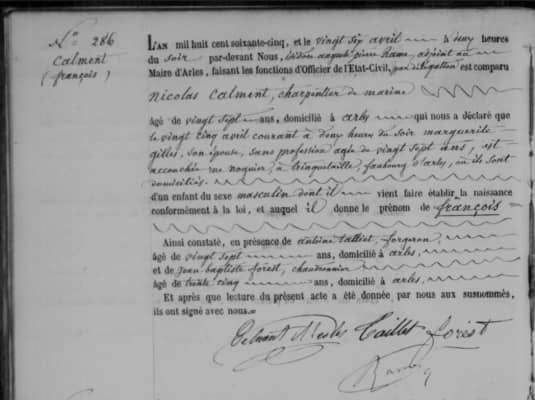 N° 286
Calment
(françois)
L'AN mil huit cent soixante-cinq, et le vingt six avril à deux heures
du soir par-devant Nous, pierre adjoint au
Maire d'Arles, faisant les fonctions d'Officier de l'Etat-Civil, par délégation est comparu
Nicolas Calment, charpentier de marine
âgé de vingt sept ans, domicilié à arles qui nous a déclaré que
le vingt cinq avril courant à deux heures du soir marguerite
gilles, son épouse, sans profession agée de vingt sept ans, est
accouchée rue noguier, à trinquetaille, faubourg d'arles, où ils sont
domiciliés.
d'un enfant du sexe masculin dont il vient faire établir la naissance
conformément à la loi, et auquel il donne le prénom de françois
Ainsi constaté, en présence de antoine forgeron,
âgé de vingt sept ans, domicilié à arles,
et de Jean baptiste forest, chaudronnier
âgé de trente cinq ans, domicilié à arles,
Et après que lecture du présent acte a été donnée par nous aux susnommés,
ils ont signé avec nous.
Calment Nicolas Caillet forest